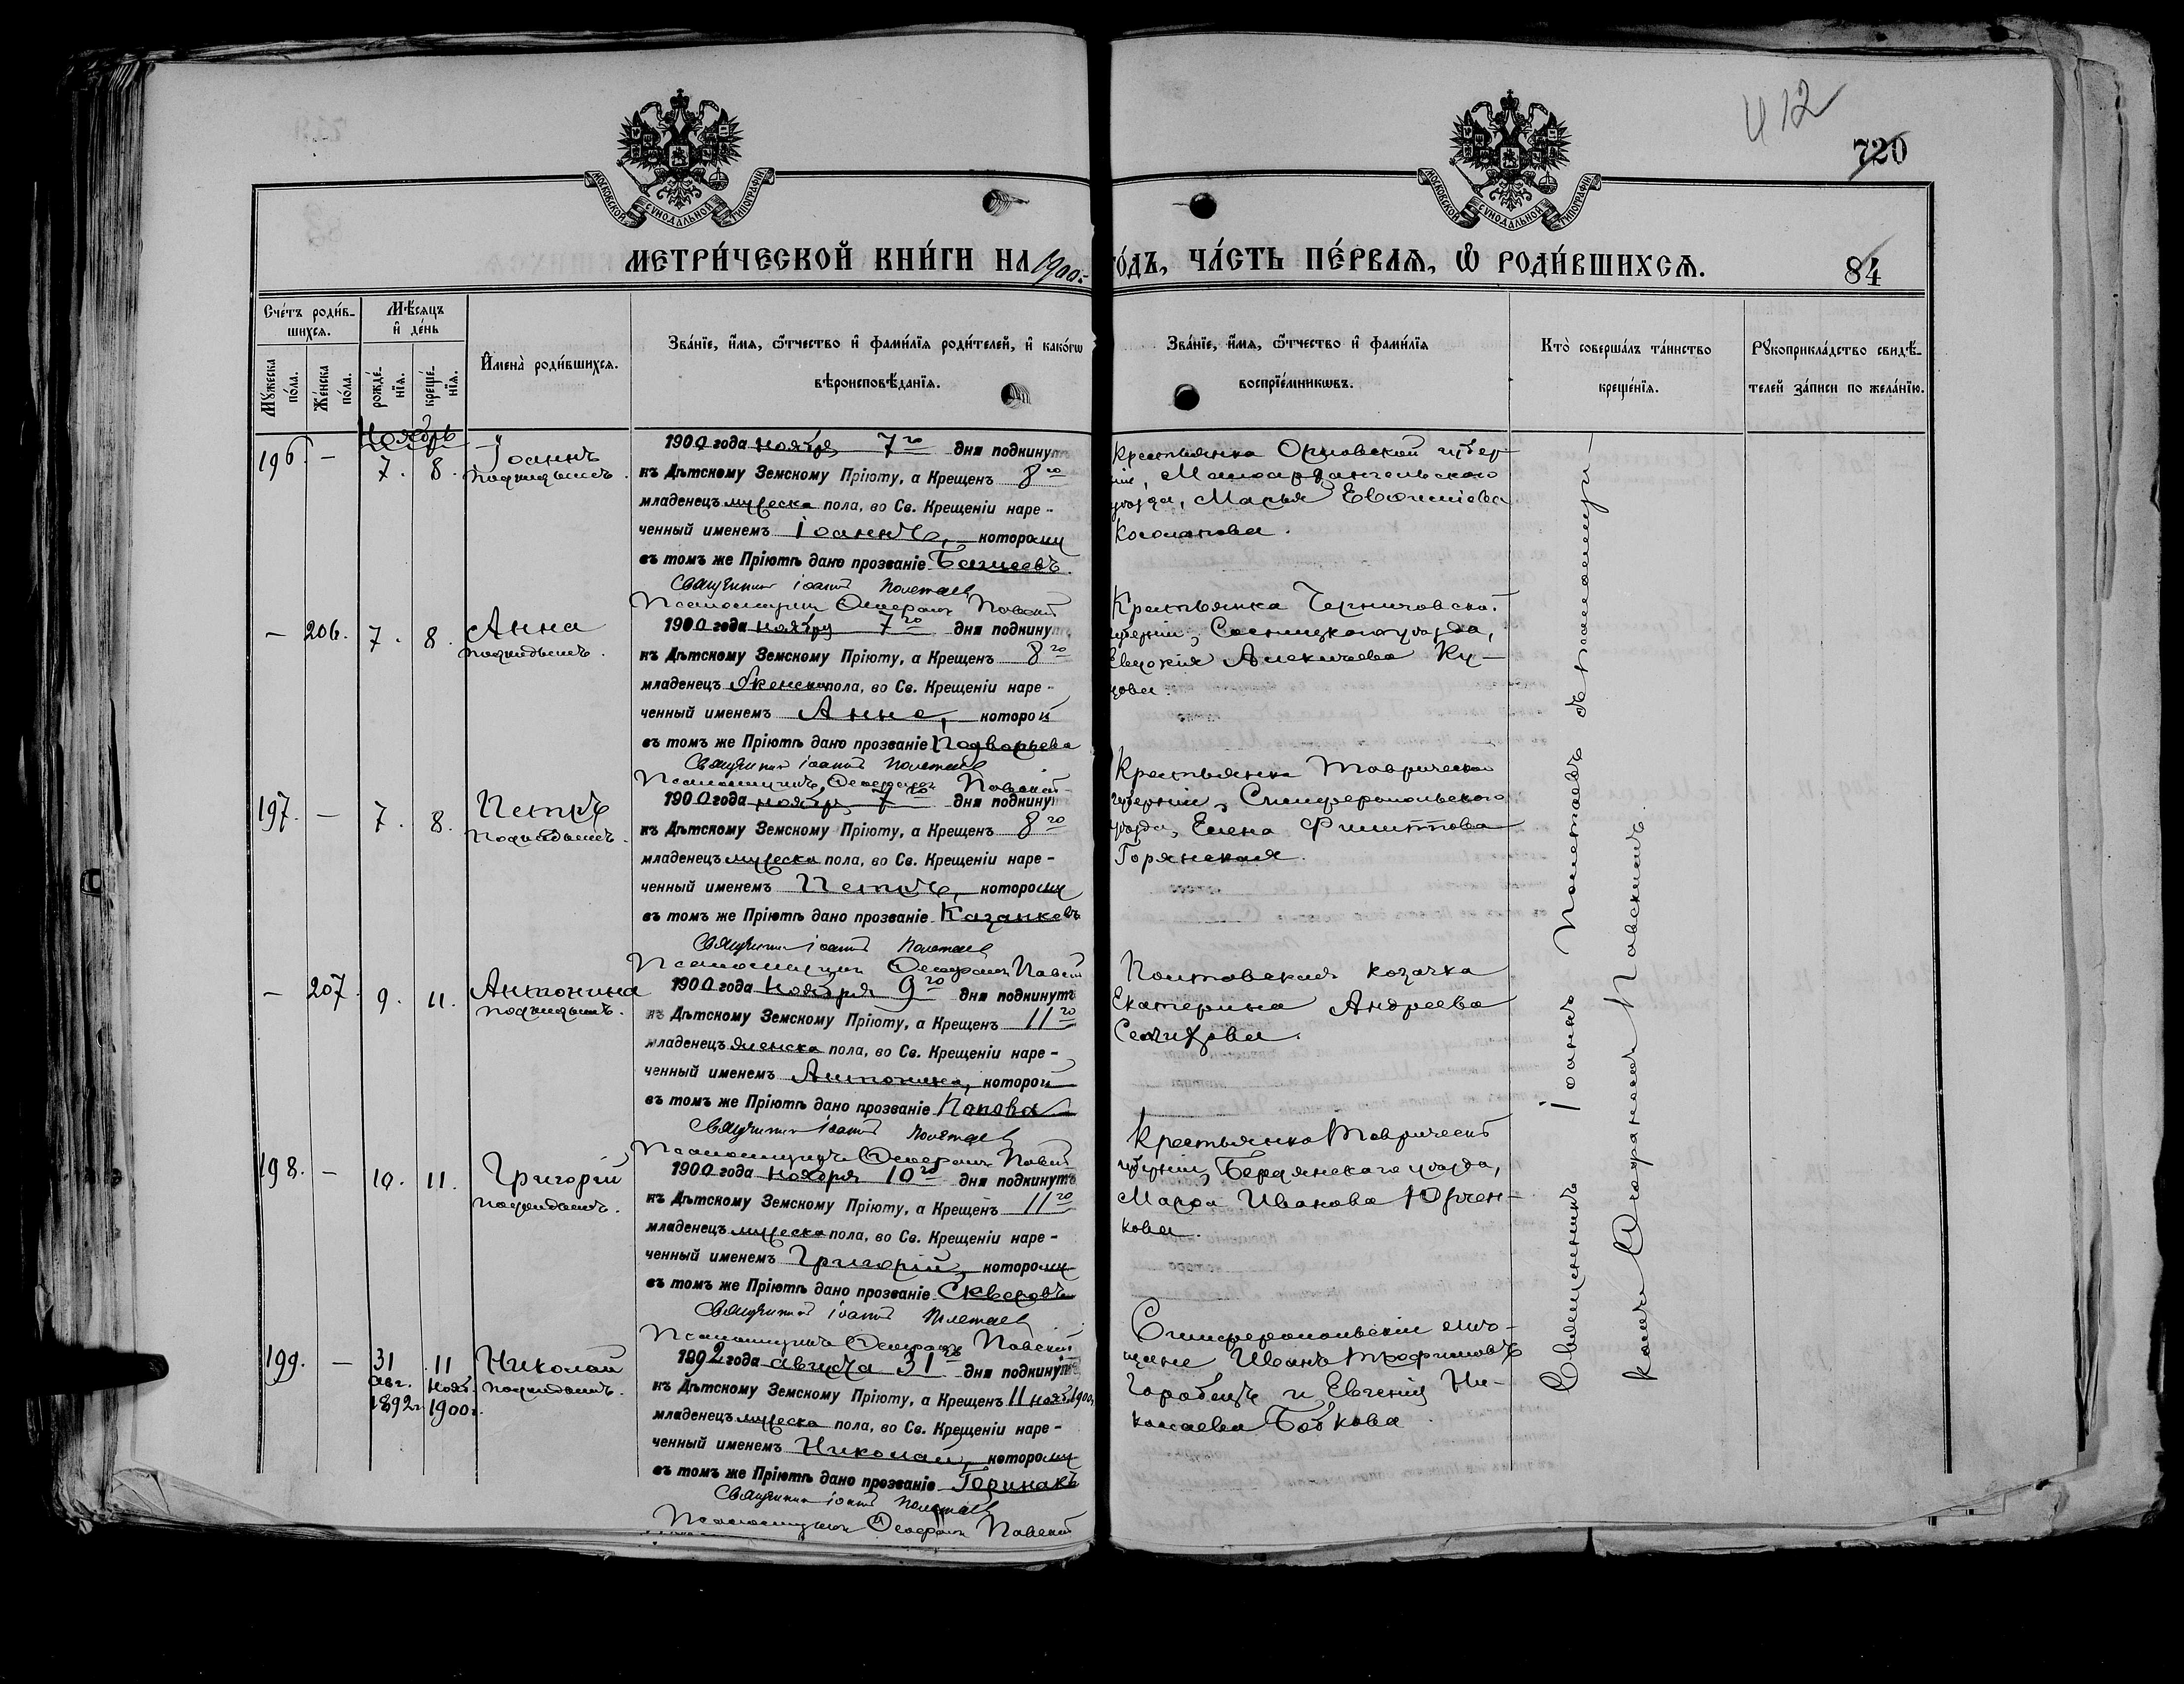 412
720
МОСКОВСКОЙ СѴНОДАЛЬНОЙ ТИПОГРАФІИ
МОСКОВСКОЙ СѴНОДАЛЬНОЙ ТИПОГРАФІИ
МЕТРИ́ЧЕСКОЙ КНИ́ГИ НА 1900 го́дъ, ЧА́СТЬ ПЕ́РВАѦ, Ѽ РОДИ́ВШИХСѦ.
84
Сче́тъ роди́в-
шихсѧ.
Мѣ́сѧцъ
и҆ де́нь
Мꙋ́жеска
по́ла.
Же́нска
по́ла.
рожде́-
нїѧ.
креще́-
нїѧ.
И҆мена̀ роди́вшихсѧ.
Зва́нїе, и҆́мѧ, ѻ҆́тчество и҆ фами́лїѧ роди́телей, и҆ како́гѡ
вѣроисповѣ́данїѧ.
Зва́нїе, и҆́мѧ, ѻ҆́тчество и҆ фами́лїѧ
воспрїе́мникѡвъ.
Кто̀ соверша́лъ та́инство
креще́нїѧ.
Рꙋкоприкла́дство свидѣ́-
телей за́писи по жела́нїю.
Ноябрь
196. — 7. 8. Іоаннъ
подкидышъ.
1900 года ноября 7го дня подкинутъ
къ Дѣтскому Земскому Пріюту, а Крещенъ 8го
младенецъ мужеска пола, во Св. Крещеніи наре-
ченный именемъ Іоаннъ, которому
въ томъ же Пріютѣ дано прозваніе
Священникъ Іоаннъ Полетаевъ
Псаломщикъ Ѳеофанъ Павскій
Крестьянка Орловской губер-
ніи, Малоархангельскаго
уѣзда, Марья
— 206. 7. 8. Анна
подкидышъ.
1900 года ноября 7го дня подкинутъ
къ Дѣтскому Земскому Пріюту, а Крещенъ 8го
младенецъ женска пола, во Св. Крещеніи наре-
ченный именемъ Анна, которой
въ томъ же Пріютѣ дано прозваніе Подворьева
Священникъ Іоаннъ Полетаевъ
Псаломщикъ Ѳеофанъ Павскій
Крестьянка Черниговской
губерніи, Сосницкаго уѣзда,
Евдокія Алексѣева
197. — 7. 8. Петръ
подкидышъ.
1900 года ноября 7го дня подкинутъ
къ Дѣтскому Земскому Пріюту, а Крещенъ 8го
младенецъ мужеска пола, во Св. Крещеніи наре-
ченный именемъ Петръ, которому
въ томъ же Пріютѣ дано прозваніе Казанковъ
Священникъ Іоаннъ Полетаевъ
Псаломщикъ Ѳеофанъ Павскій
Крестьянка Таврической
губерніи, Симферопольскаго
уѣзда, Елена Филиппова
Горянская.
— 207. 9. 11. Антонина
подкидышъ.
1900 года ноября 9го дня подкинутъ
къ Дѣтскому Земскому Пріюту, а Крещенъ 11го
младенецъ женска пола, во Св. Крещеніи наре-
ченный именемъ Антонина, которой
въ томъ же Пріютѣ дано прозваніе Попова
Священникъ Іоаннъ Полетаевъ
Псаломщикъ Ѳеофанъ Павскій
Полтовская козачка
Екатерина Андреева
198. — 10. 11. Григорій
подкидышъ.
1900 года ноября 10го дня подкинутъ
къ Дѣтскому Земскому Пріюту, а Крещенъ 11го
младенецъ мужеска пола, во Св. Крещеніи наре-
ченный именемъ Григорій, которому
въ томъ же Пріютѣ дано прозваніе Скверовъ
Священникъ Іоаннъ Полетаевъ
Псаломщикъ Ѳеофанъ Павскій
Крестьянка Таврической
губерніи, Бердянскаго уѣзда,
Марѳа Иванова Юрчен-
кова.
199. — 31 авг. 1892 г. 11 нояб. 1900 г. Николай
подкидышъ.
1892 года августа 31го дня подкинутъ
къ Дѣтскому Земскому Пріюту, а Крещенъ 11 нояб. 1900 г.
младенецъ мужеска пола, во Св. Крещеніи наре-
ченный именемъ Николай, которому
въ томъ же Пріютѣ дано прозваніе Горинакъ
Священникъ Іоаннъ Полетаевъ
Псаломщикъ Ѳеофанъ Павскій
Симферопольскіи мѣ-
щане Иванъ Трофимовъ
Горобецъ и Евгенія Ни-
колаева Бобкова
Священникъ Іоаннъ Полетаевъ съ псаломщи-
комъ Ѳеофаномъ Павскимъ.